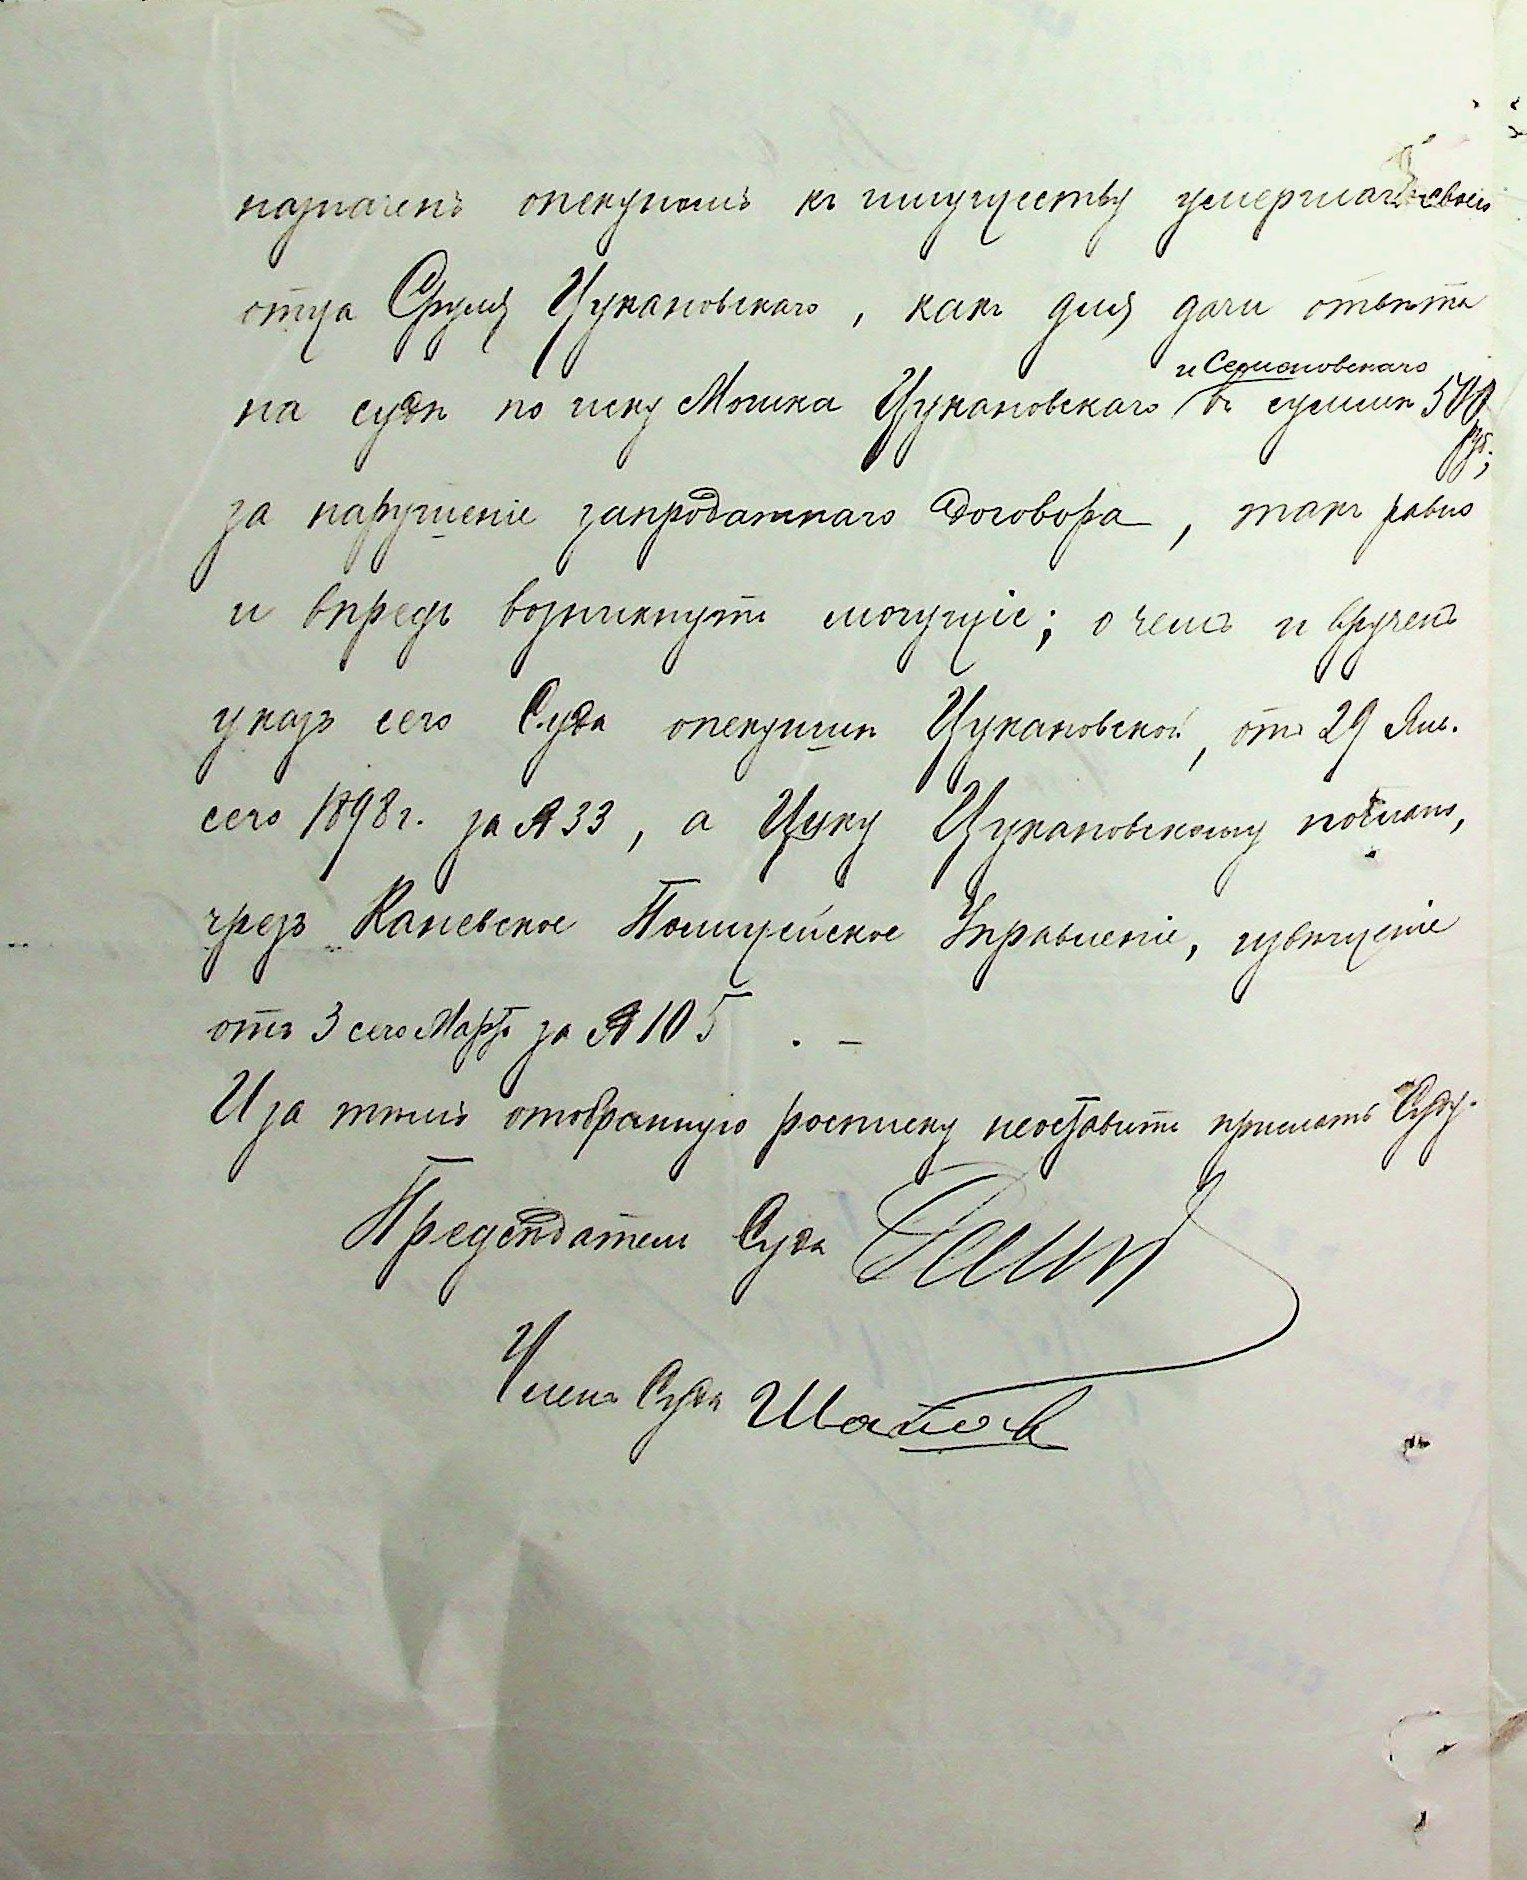 назначенъ опекуномъ къ имуществу умершаго своего
отца Сруля Цукановскаго, какъ для дачи отвѣта
и Семионовскаго
на судѣ по иску Мошка Цукановскаго въ суммѣ 500
руб;
за нарушеніе запродажнаго договора, такъ равно
и впредь возникнуть могущіе; о чемъ и врученъ
указъ сего Суда опекуншѣ Цукановской, отъ 29 Янв.
сего 1898 г. за № 33, а Цуку Цукановскому послано,
чрезъ Каневское Полицейское Управленіе, извѣщеніе
отъ 3 сего Марта за № 105. –
И за тѣмъ отобранную росписку неоставить прислать Суду.
Предсѣдатель Суда
Членъ Суда